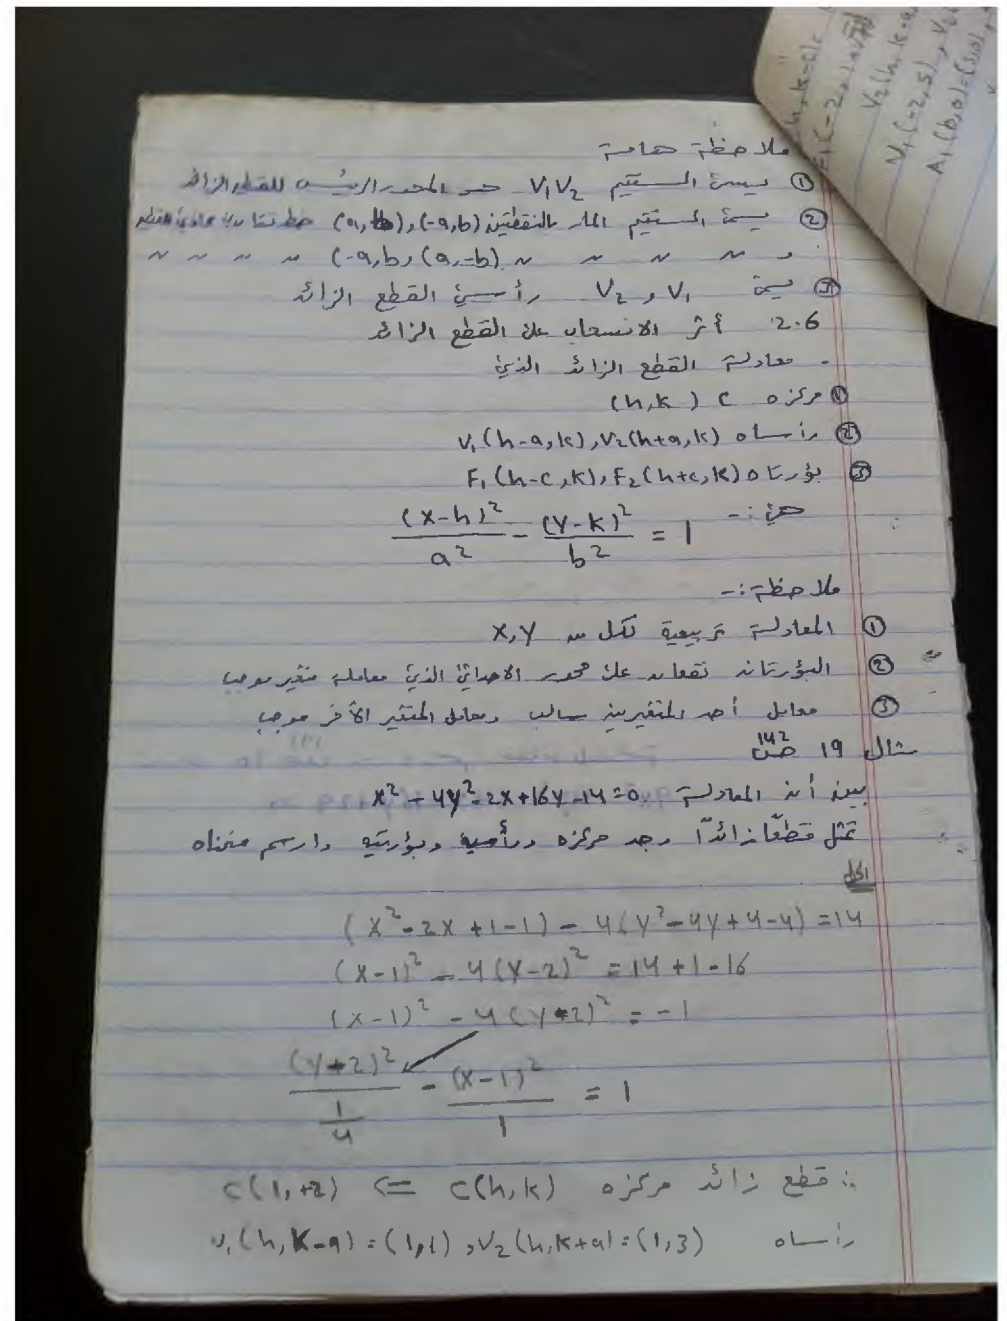 ملاحظة هامة
① يسمى المستقيم V₁V₂ هو المحور الرئيسي للقطع الزائد
② يسمى المستقيم المار بالنقطتين (-a,b) , (a,-b) خط تقارب للقطع
و ~ ~ ~ ~ (a,-b) و (-a,b) ~ ~ ~ ~
③ يسمى V₁ و V₂ رأسي القطع الزائد
2.6 أثر الانسحاب على القطع الزائد
- معادلة القطع الزائد الذي
① مركزه C (h,k)
② رأساه V₁(h-a,k), V₂(h+a,k)
③ بؤرتاه F₁(h-c,k), F₂(h+c,k)
هي :-
(x-h)²/a² - (y-k)²/b² = 1
ملاحظة :-
① المعادلة تربيعية لكل من x,y
② البؤرتان تقعان على محور الاحداثي الذي معامله متغير موجب
③ معامل أحد المتغيرين سالب ومعامل المتغير الآخر موجب
مثال 19 ص 142
بين أن المعادلة x² - 4y² - 2x + 16y - 14 = 0
تمثل قطعًا زائدًا وجد مركزه ورأسيه وبؤرتيه وارسم منحناه
الحل
(x² - 2x + 1 - 1) - 4(y² - 4y + 4 - 4) = 14
(x-1)² - 4(y-2)² = 14 + 1 - 16
(x-1)² - 4(y-2)² = -1
(y-2)²/(1/4) - (x-1)²/1 = 1
∴ قطع زائد مركزه C(h,k) ⇐ C(1,+2)
رأساه V₁(h,k-a) = (1,1) , V₂(h,k+a) = (1,3)